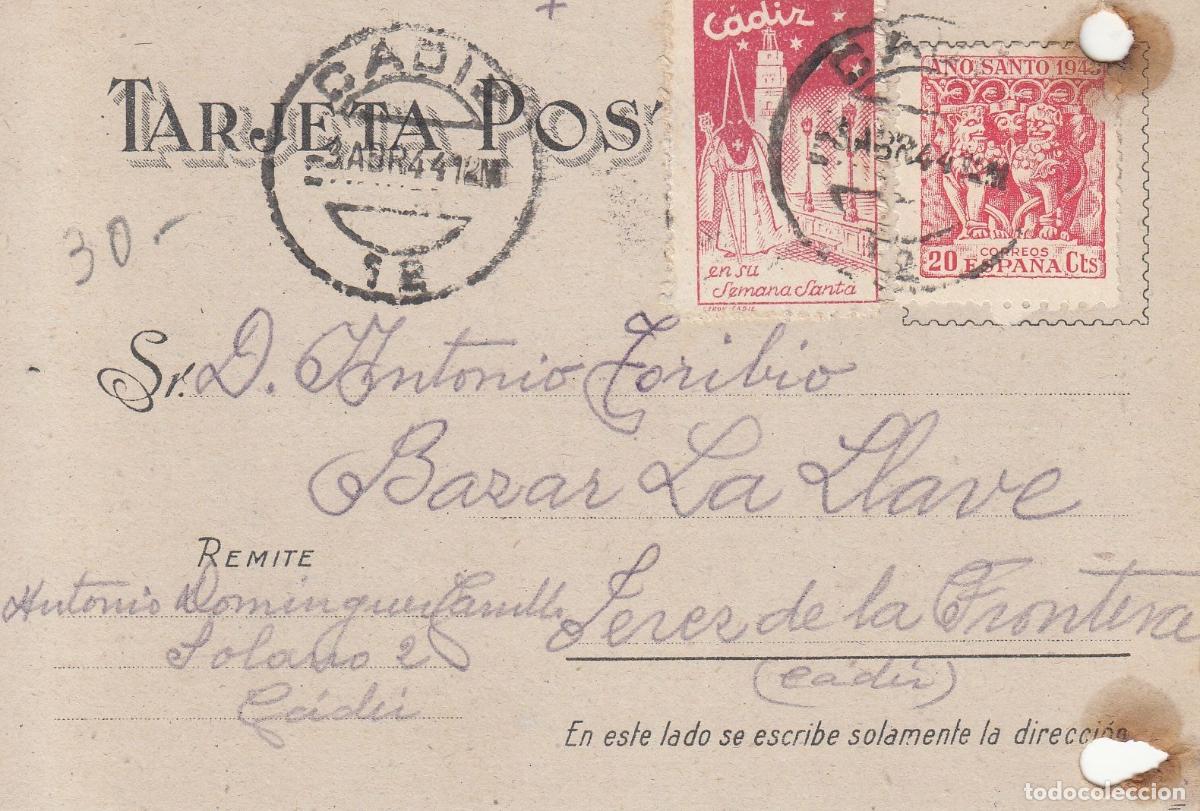 TARJETA POS
CADIZ
3 ABR 44 12M
1 E
Cádiz
en su
Semana Santa
AÑO SANTO 1943
3 ABR 44 12M
CORREOS
20 ESPAÑA Cts
30-
Sr. D. Antonio Toribio
Bazar La Llave
REMITE
Antonio Dominguez
Jerez de la Frontera
Solano 2
(Cádiz)
Cádiz
En este lado se escribe solamente la dirección
todocoleccion